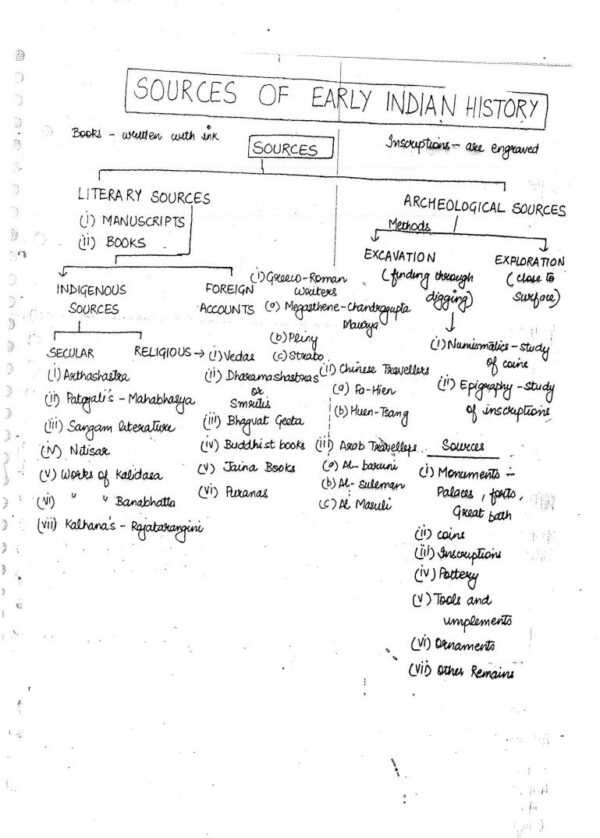 SOURCES OF EARLY INDIAN HISTORY
Books - written with ink
Inscriptions - are engraved
SOURCES
LITERARY SOURCES
(i) MANUSCRIPTS
(ii) BOOKS
INDIGENOUS
SOURCES
SECULAR
(i) Arthashastra
(ii) Patajali's - Mahabhasya
(iii) Sangam literature
(iv) Nitisar
(v) Works of Kalidasa
(vi) " " Banabhatta
(vii) Kalhana's - Rajatarangini
RELIGIOUS →
(i) Vedas
(ii) Dharamashastras
or
Smritis
(iii) Bhagvat Geeta
(iv) Buddhist books
(v) Jaina Books
(vi) Puranas
FOREIGN
ACCOUNTS
(i) Greeco-Roman
writers
(a) Megasthene-Chandragupta
Maurya
(b) Pliny
(c) Strabo
(ii) Chinese Travellers
(a) Fa-Hien
(b) Huen-Tsang
(iii) Arab Travellers
(a) Al-baruni
(b) Al-Suleman
(c) Al Masuli
ARCHEOLOGICAL SOURCES
Methods
EXCAVATION
(finding through
digging)
EXPLORATION
(close to
surface)
(i) Numismatics - study
of coins
(ii) Epigraphy - study
of inscriptions
Sources
(i) Monuments -
Palaces, forts,
Great bath
(ii) coins
(iii) Inscriptions
(iv) Pottery
(v) Tools and
implements
(vi) Ornaments
(vii) Other Remains